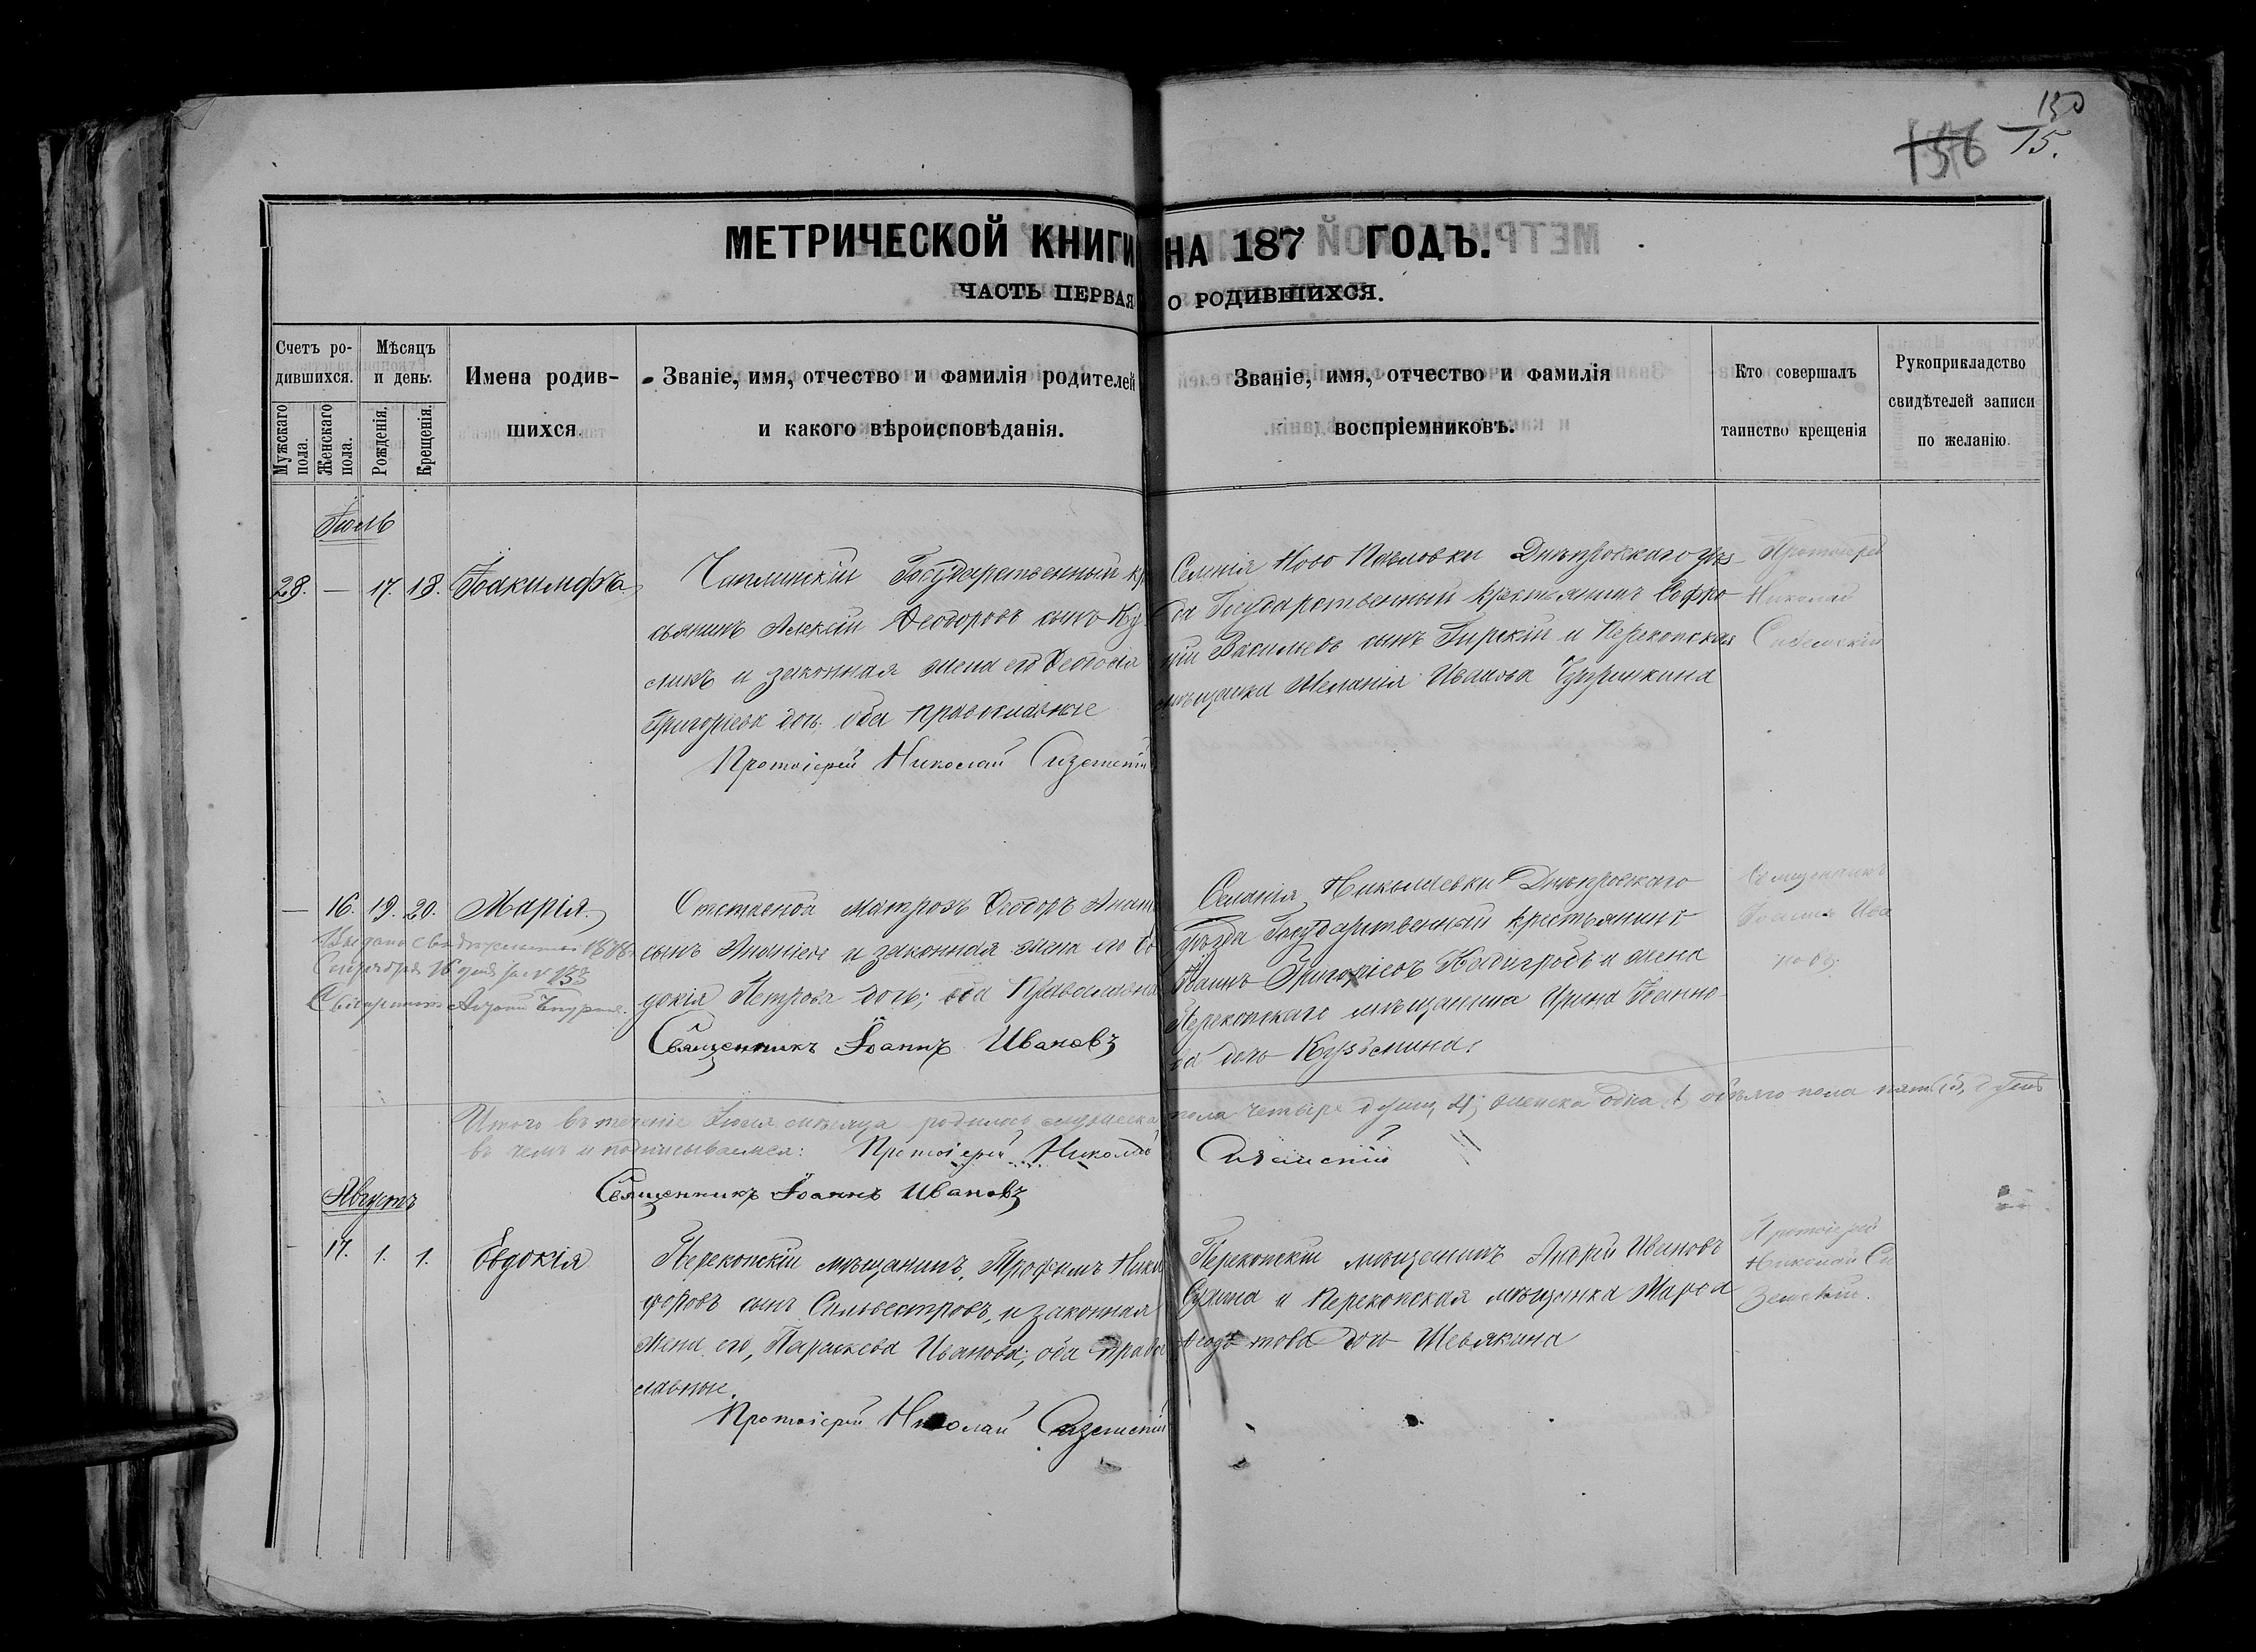 130
156 15.
МЕТРИЧЕСКОЙ КНИГИ НА 187 ГОДЪ.
ЧАСТЬ ПЕРВАЯ О РОДИВШИХСЯ.
Счетъ ро-
дившихся.
Мужскаго
пола.
Женскаго
пола.
Мѣсяцъ
и день.
Рожденія.
Крещенія.
Имена родив-
шихся
Званіе, имя, отчество и фамилія родителей
и какого вѣроисповѣданія.
Званіе, имя, отчество и фамилія
воспріемниковъ.
Кто совершалъ
таинство крещенія
Рукоприкладство
свидѣтелей записи
по желанію.
Іюль
28. — 17. 18. Іакинфъ
Чаплинскій Государственный кр
сьянинъ Алексѣй Ѳеодоровъ сынъ
и законная жена его Ѳеодосія
Григоріева дочь, оба православные
Протоіерей Николай Сиземскій
Селенія Ново Павловки Днѣпровскаго уѣз-
да Государственный крестьянинъ Софро-
ній Васильевъ сынъ Гирскій и Перекопская
мѣщанка Меланія Иванова Чупринкина
Протоіерей
Николай
Сиземскій
— 16. 19. 20. Марія.
Выдано свидѣтельство 1878
Сентября 16 дня за № 133
Священникъ Андрей
Отставной матрозъ Ѳеодоръ
сынъ и законная жена его Ев
докія Петрова дочь; оба Православные
Священникъ Іоаннъ Ивановъ
Селенія Николаевки Днѣпровскаго
уѣзда Государственный крестьянинъ
Іоаннъ Григоріевъ и жена
Перекопскаго мѣщанина Ирина Іоанно-
ва дочь Кузьмина.
Священникъ
Іоаннъ Ива
новъ.
Итого въ теченіе Іюля мѣсяца родилось мужеска пола четыре души, 4; женска одна (1) обоего пола пять (5) душъ
въ чемъ и подписываемся: Протоіерей Николай Сиземскій
Священникъ Іоаннъ Ивановъ
Августъ
17. 1. 1. Евдокія
Перекопскій мѣщанинъ, Трофимъ Ники
форовъ сынъ Сильвестровъ, и законная
жена его, Параскева Иванова; оба право
славные.
Протоіерей Николай Сиземскій
Перекопскій мѣщанинъ Андрей Ивановъ
и Перекопская мѣщанка Марѳа
Ѳедотова дочь Шевякина
Протоіерей
Николай Си
земскій.